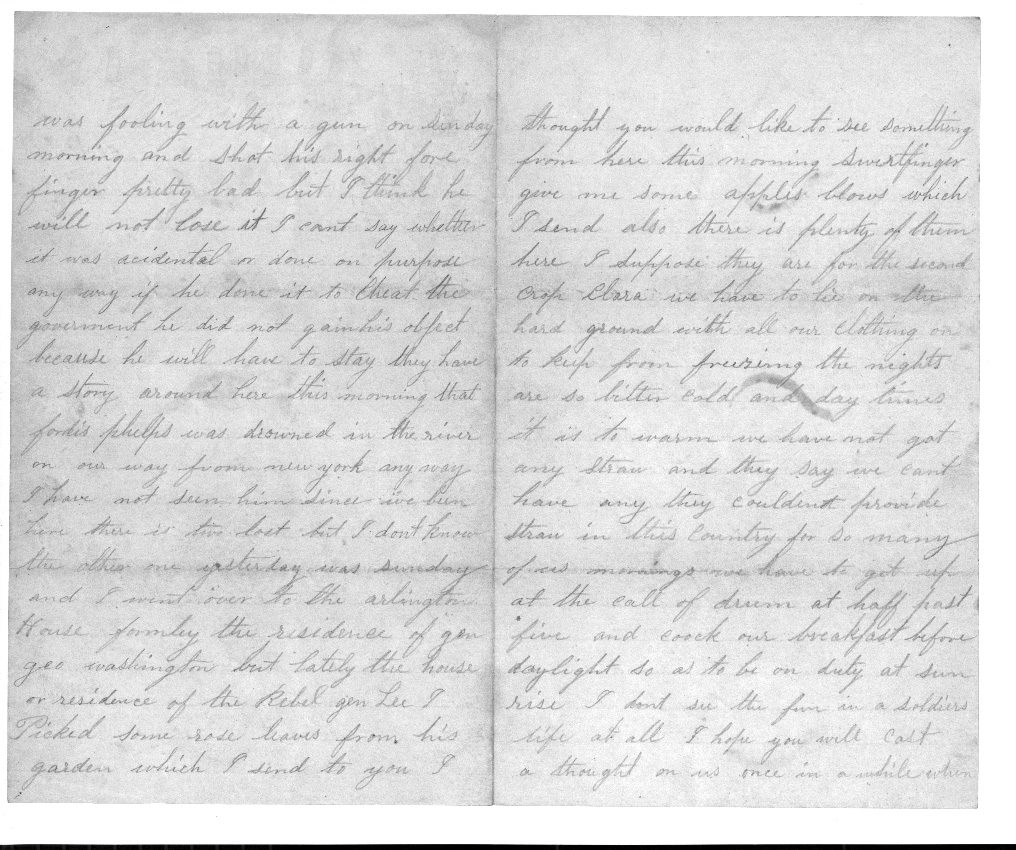 was fooling with a gun on sunday
morning and shot his right fore
finger pretty bad but I think he
will not lose it I cant say whether
it was acidental or done on purpose
any way if he done it to Cheat the
goverment he did not gain his object
because he will have to stay they have
a story around here this morning that
fordis phelps was drowned in the river
on our way from new york any way
I have not seen him since ive been
here there is two lost but I dont know
the other one yesterday was sunday
and I went over to the arlington
House formley the residence of gen
geo washington but lately the house
or residence of the Rebel gen Lee I
Picked some rose leaves from his
garden which I send to you I
thought you would like to see something
from here this morning Swertfinger
give me some apples blows which
I send also there is plenty of them
here I suppose they are for the second
crop Clara we have to lie on the
hard ground with all our clothing on
to keep from freezing the nights
are so bitter cold and day times
it is to warm we have not got
any straw and they say we cant
have any they couldent provide
straw in this Country for so many
of us mornings we have to get up
at the call of drum at half past
five and coock our breakfast before
daylight so as to be on duty at sun
rise I dont see the fun in a soldiers
life at all I hope you will cast
a thought on us once in a while when